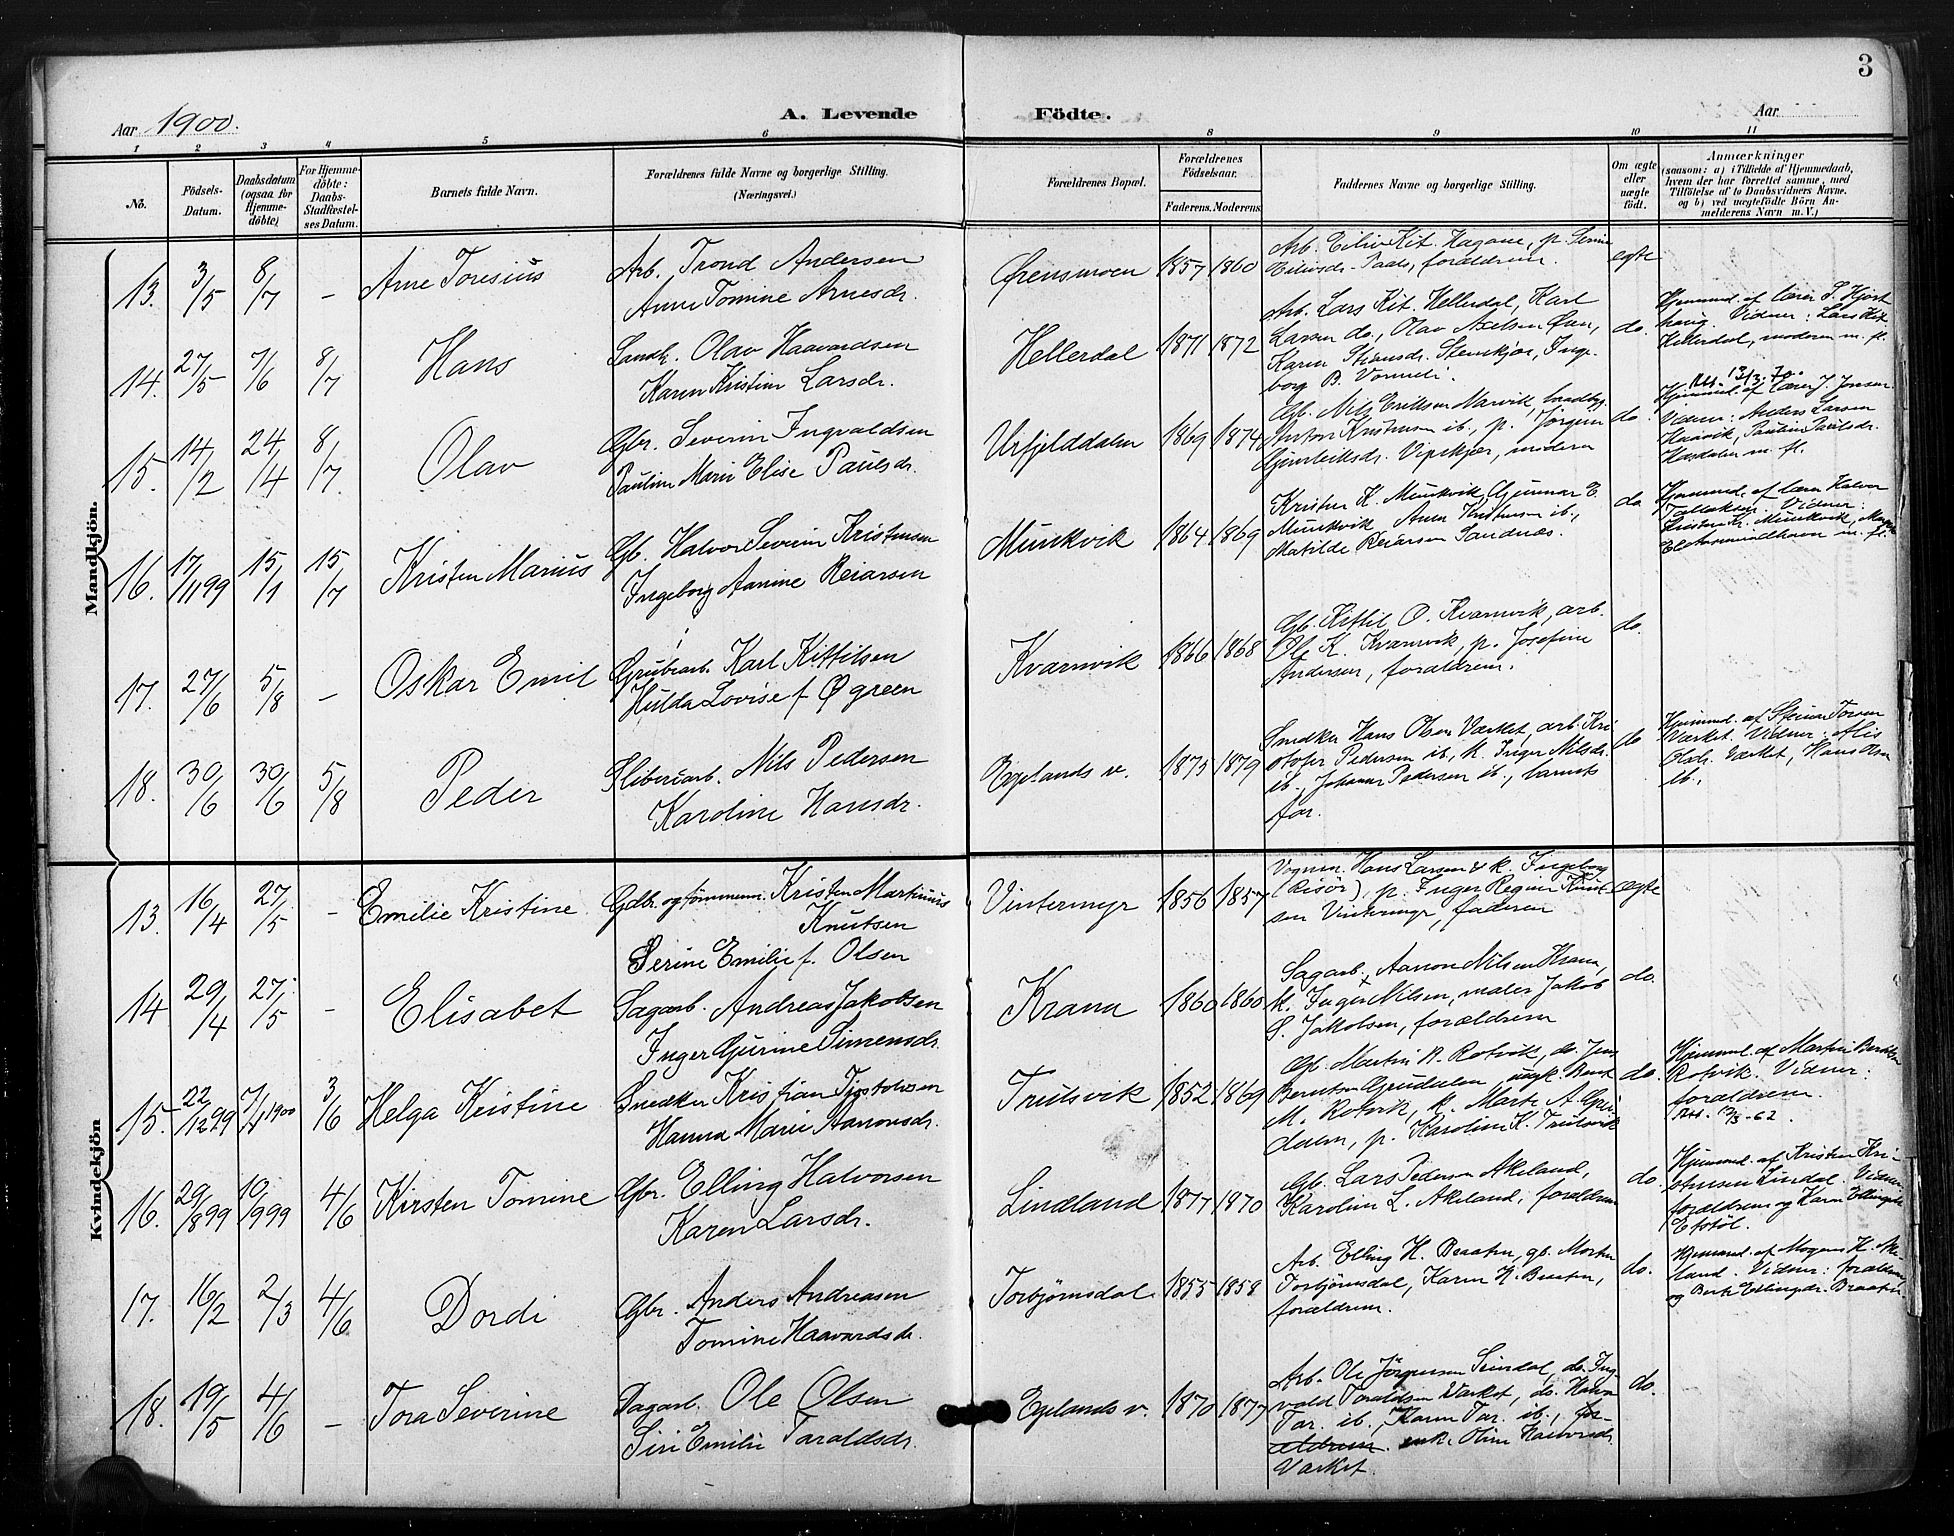 3
Aar 1900.
A. Levende Födte.
Aar
1 2 3 4 5 6 8 9 10 11
No.
Födsels-Datum.
Daabsdatum (ogsaa for Hjemme-döbte)
For Hjemme-döbte: Daabs-Stadfæstel-ses Datum.
Barnets fulde Navn.
Forældrenes fulde Navne og borgerlige Stilling.
(Næringsvei.)
Forældrenes Bopæl.
Forældrenes Födselsaar.
Faderens. Moderens.
Faddernes Navne og borgerlige Stilling.
Om ægte eller uægte födt.
Anmærkninger
(saasom: a) i Tilfælde af Hjemmedaab,
hvem der har forrettet samme, med
Tilföielse af to Daabsvidners Navne.
og b) ved uægtefödte Börn An-
melderens Navn m. V.)
Mandkjön.
13. 3/5 8/7 – Arne Toresius
Arb. Trond Andersen
Anne Tomine Arnesdr.
Grensmoen 1857 1860
Arb. Eiliv Kit. Hagane, p.
Eilivsdr. , forældrene.
egte
14. 27/5 7/6 8/7 Hans
Sandh. Olav Haavardsen
Karen Kristine Larsdr.
Hellerdal 1871 1872
Arb. Lars Kit. Hellerdal, Karl
Larsen do., Olav Nielsen
Karen Stiansdr. Stenskjær, Inge-
borg B.
do.
Hjemmed. af lærer S. Hjort
haug. Vidner: Lars Kit.
Hellerdal, moderen m. fl.
Att. 13/3-70.
15. 14/2 24/4 8/7 Olav
Gbr. Severin Ingvaldsen
Pauline Marie Elise Paulsdr.
Urfjelddalen 1869 1874
Gb. Nils Eriksen Narvik,
Anton Kristensen ib., p. Jørgine
Gunleiksdr. Vipekjær, moderen
do.
Hjemmed. af lærer J. Jensen
Vidner: Anders Larsen
Haavik, Pauline Paulsdr.
m. fl.
16. 17/11 99 15/1 15/7 Kristen Marius
Gb. Halvor Severin Kristensen
Ingeborg Aanine Reiarsen
Munkvik 1864 1869
Kristen K. Munkvik, Gunnar E.
Munkvik, Anne Kristensen ib.,
Matilde Reiarsen Sandnæs.
do
Hjemmed. af lærer Halvor
Tallaksen. Vidner:
Kristen K. Munkvik,
m. fl.
17. 27/6 5/8 – Oskar Emil
Grubearb. Karl Kittilsen
Hulda Lovise f. Øgreen
Kvarnvik 1866 1868
Gb. Kittil O. Kvarnvik, arb.
Ole K. Kvarnvik, p. Josefine
Andersen, forældrene.
do.
18. 30/6 30/6 5/8 Peder
Sliberiarb. Nils Pedersen
Karoline Hansdr.
Egelands v. 1875 1879
Snedker Hans Olsen Værket, arb. Kri-
stofer Pedersen ib., k. Inger Nilsdr.
ib., Johanne Pedersen ib., barnets
far.
do
Hjemmed. af
Værket. Vidner:
Olsdr. Værket, Hans Olsen
ib.
Kvindekjön
13. 16/4 27/5 – Emilie Kristine
Gdbr. og tømmerm. Kristen Martinius
Knutsen
Serine Emilie f. Olsen
Vintermyr 1856 1857
Vognm. Hans Larsen & k. Ingeborg
(Risør), p. Inger Regine Knut-
sen Vintermyr, faderen
egte
14 29/4 27/5 – Elisabet
Sagarb. Andreas Jakobsen
Inger Gurine Simensdr.
Krana 1860 1860
Sagarb. Aanon Nilsen Krana,
k. Inger Nilsen, maler Jakob
S. Jakobsen, forældrene
do.
15. 22/12 99 7/1 1900 3/6 Helga Kristine
Snedker Kristian Tjøstolvsen
Hanna Marie Aanonsdr.
Trulsvik 1852 1869
Gb. Martin B. Rotvik, do. Jens
Berntsen Grindalen ungk. Bernt
M. Rotvik, k. Marte A. Grin-
dalen, p. Karoline K. Trulsvik
do.
Hjemmed. af Martin Berntsen
Rotvik. Vidner:
forældrene.
Att. 13/3-62.
16. 29/8 99 10/9 99 4/6 Kirsten Tomine
Gbr. Elling Halvorsen
Karen Larsdr.
Lindland 1877 1870
Gb. Lars Pedersen Akeland,
Karoline L. Akeland, forældrene
do.
Hjemmed. af Kristen Kri-
stensen Lindal. Vidner
forældrene og Karen Ellingsdr.
Etstøl.
17. 16/2 2/3 4/6 Dordi
Gbr. Anders Andreasen
Tomine Haavardsdr.
Torbjørnsdal 1855 1858
Arb. Elling H. Braaten, gb. Morten
Torbjørnsdal, Karen H. Braaten,
forældrene.
do.
Hjemmed. af Mogens K. Ake-
land. Vidner: forældrene
og Berte Ellingsdr. Braaten
18. 19/5 4/6 – Tora Severine
Dagarb. Ole Olsen
Siri Emilie Taraldsdr.
Egelands v. 1870 1877
Arb. Ole Jörgensen Seindal, do. Ing-
vald Taraldsen Værket, do. Hans
Tar. ib., Karen Tar. ib., for-
ældrene. enke Oline Halvorsdr.
Værket
do.